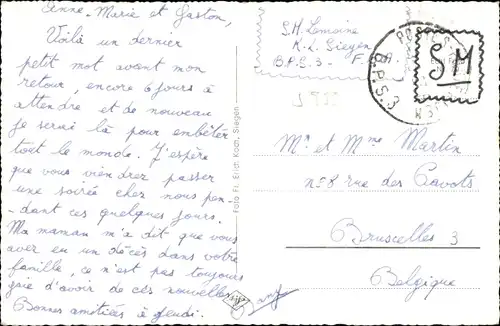 Anne-Marie et Gaston,
Voilà un dernier
petit mot avant mon
retour, encore 6 jours à
attendre et de nouveau
je serai là pour embêter
tout le monde. J'espère
que vous viendrez passer
une soirée chez nous pen-
-dant ces quelques jours.
Ma maman m'a dit que vous
avez eu un décès dans votre
famille, ce n'est pas toujours
gaie d'avoir de ces nouvelles
Bonnes amitiées à jeudi.
Foto Fr. Erich Koch, Siegen
S.M. Lemoine
K.L. Siegen
B.P.S. 3 -
SM
B.P.S. 3
Mr et Mme Martin
no 8 rue des Pavots
Bruxcelles 3
Belgique